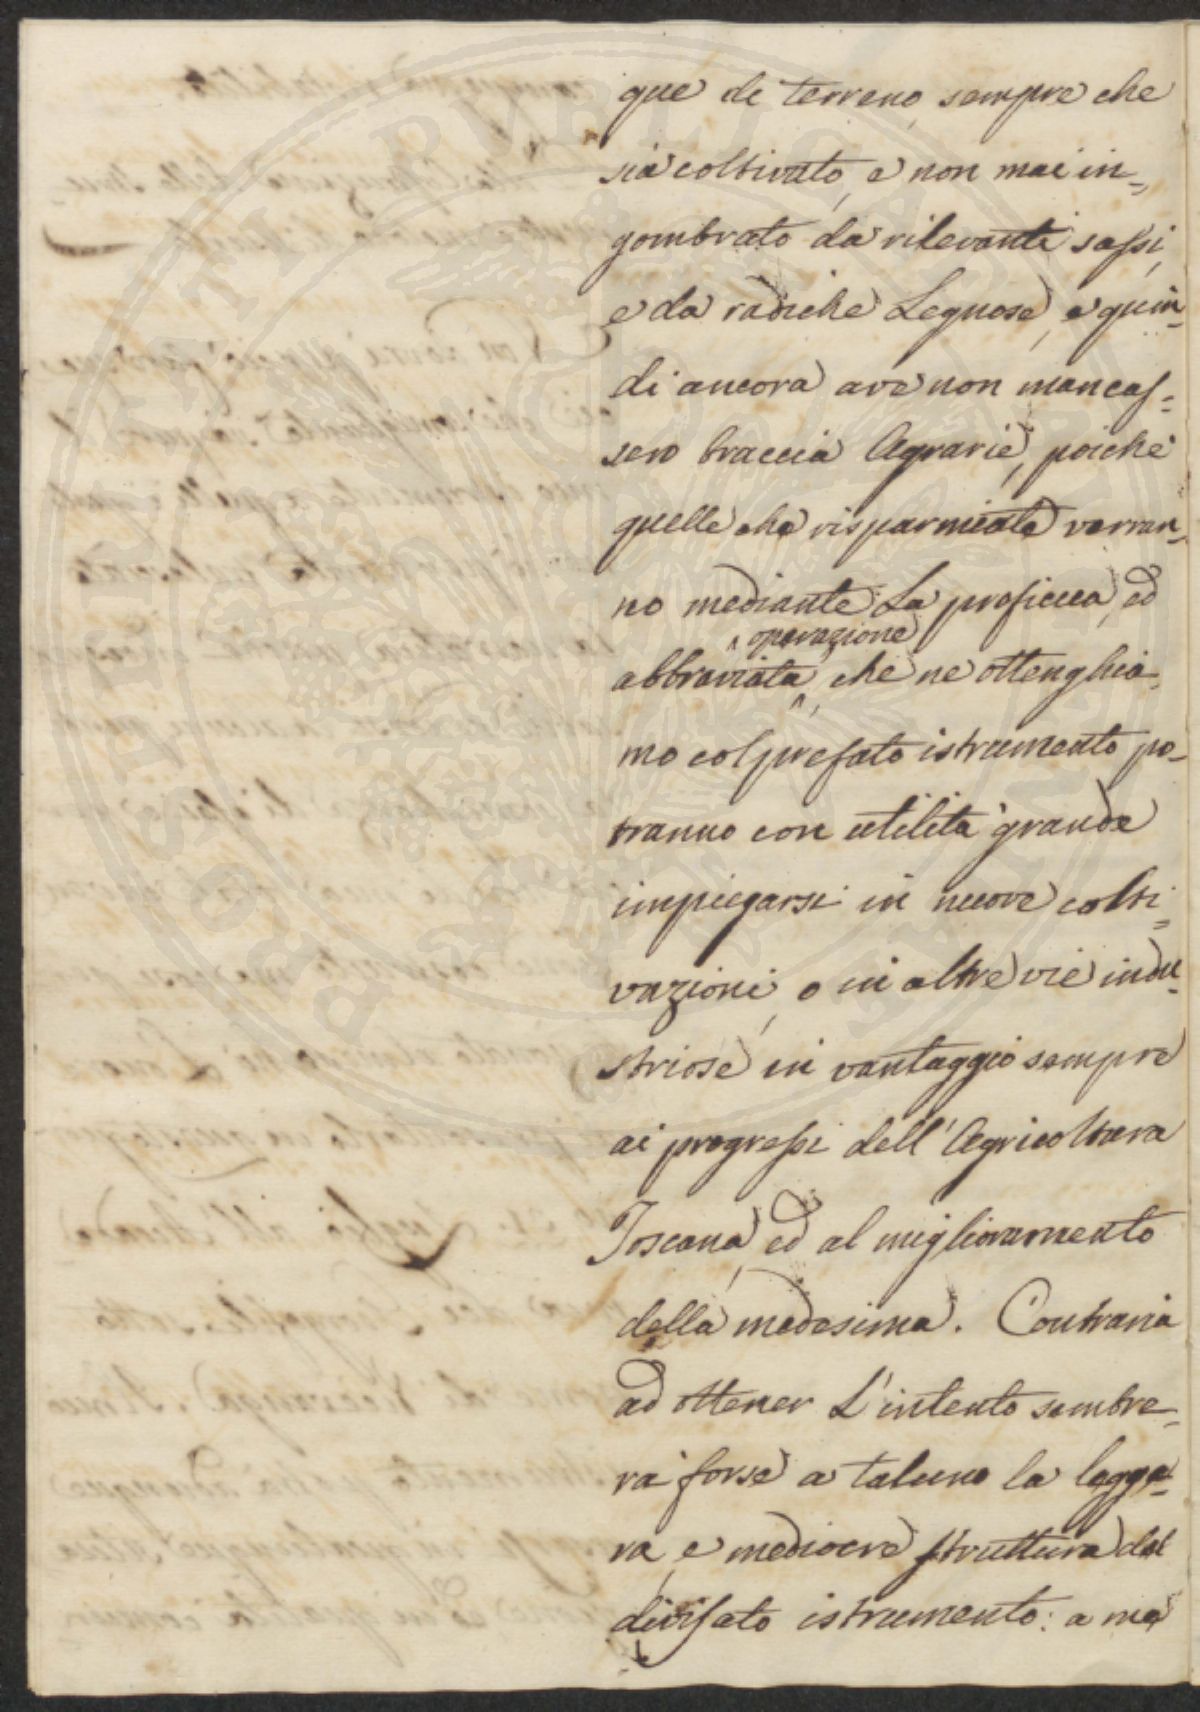 que di terreno, sempre che
sia coltivato, e non mai in=
gombrato da rilevanti sassi,
e da radiche Legnose, e quin=
di ancora ove non mancas=
sero braccia Agrarie, poichè
quelle che risparmiate verran=
no mediante La proficua, ed
abbreviata operazione, che ne ottenghia=
mo col prefato istrumento po=
tranno con utilità grande
impiegarsi in nuove colti=
vazioni, o in altre vie indu=
striose in vantaggio sempre
ai progressi dell'Agricoltura
Toscana, ed al miglioramento
della medesima. Contraria
ad ottener L'intento sembre=
rà forse a taluno la legge=
ra, e mediocre struttura del
divisato istrumento: a me
PROSPERITATI PUBLICAE AUGENDAE